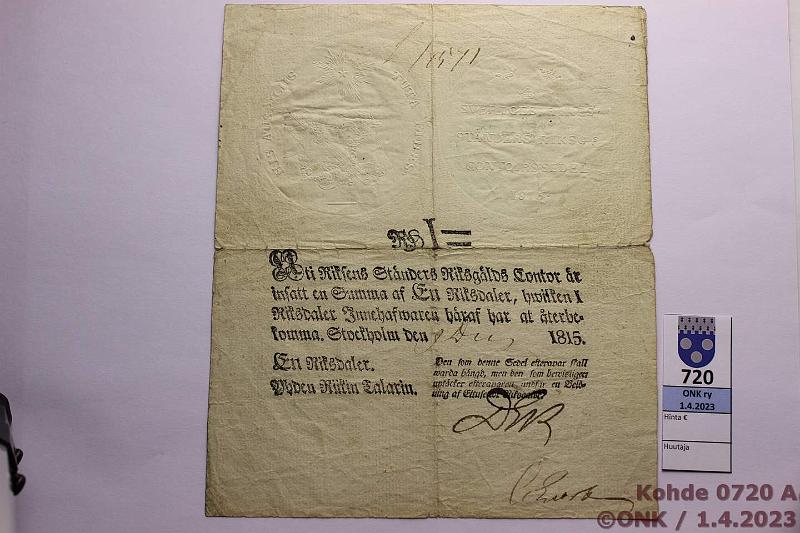 HIS AUSPICIIS
TUTA
1571
STÄNDERS RIKSG:S
1815
RD I =
Uti Riksens Ständers Riksgälds Contor är
insatt en Summa af En Riksdaler, hwilken 1
Riksdaler Innehafwaren häraf har at återbe-
komma. Stockholm den 1815.
En Riksdaler.
Yhden Riikin Talarin.
Den som denne Sedel efterapar skall
warda hängd, men den som bewisligen
uptäcker efterapningen undfår en Belö-
ning af
720
ONK ry
1.4.2023
Hinta €
Huutaja
Kohde 0720 A
©ONK / 1.4.2023